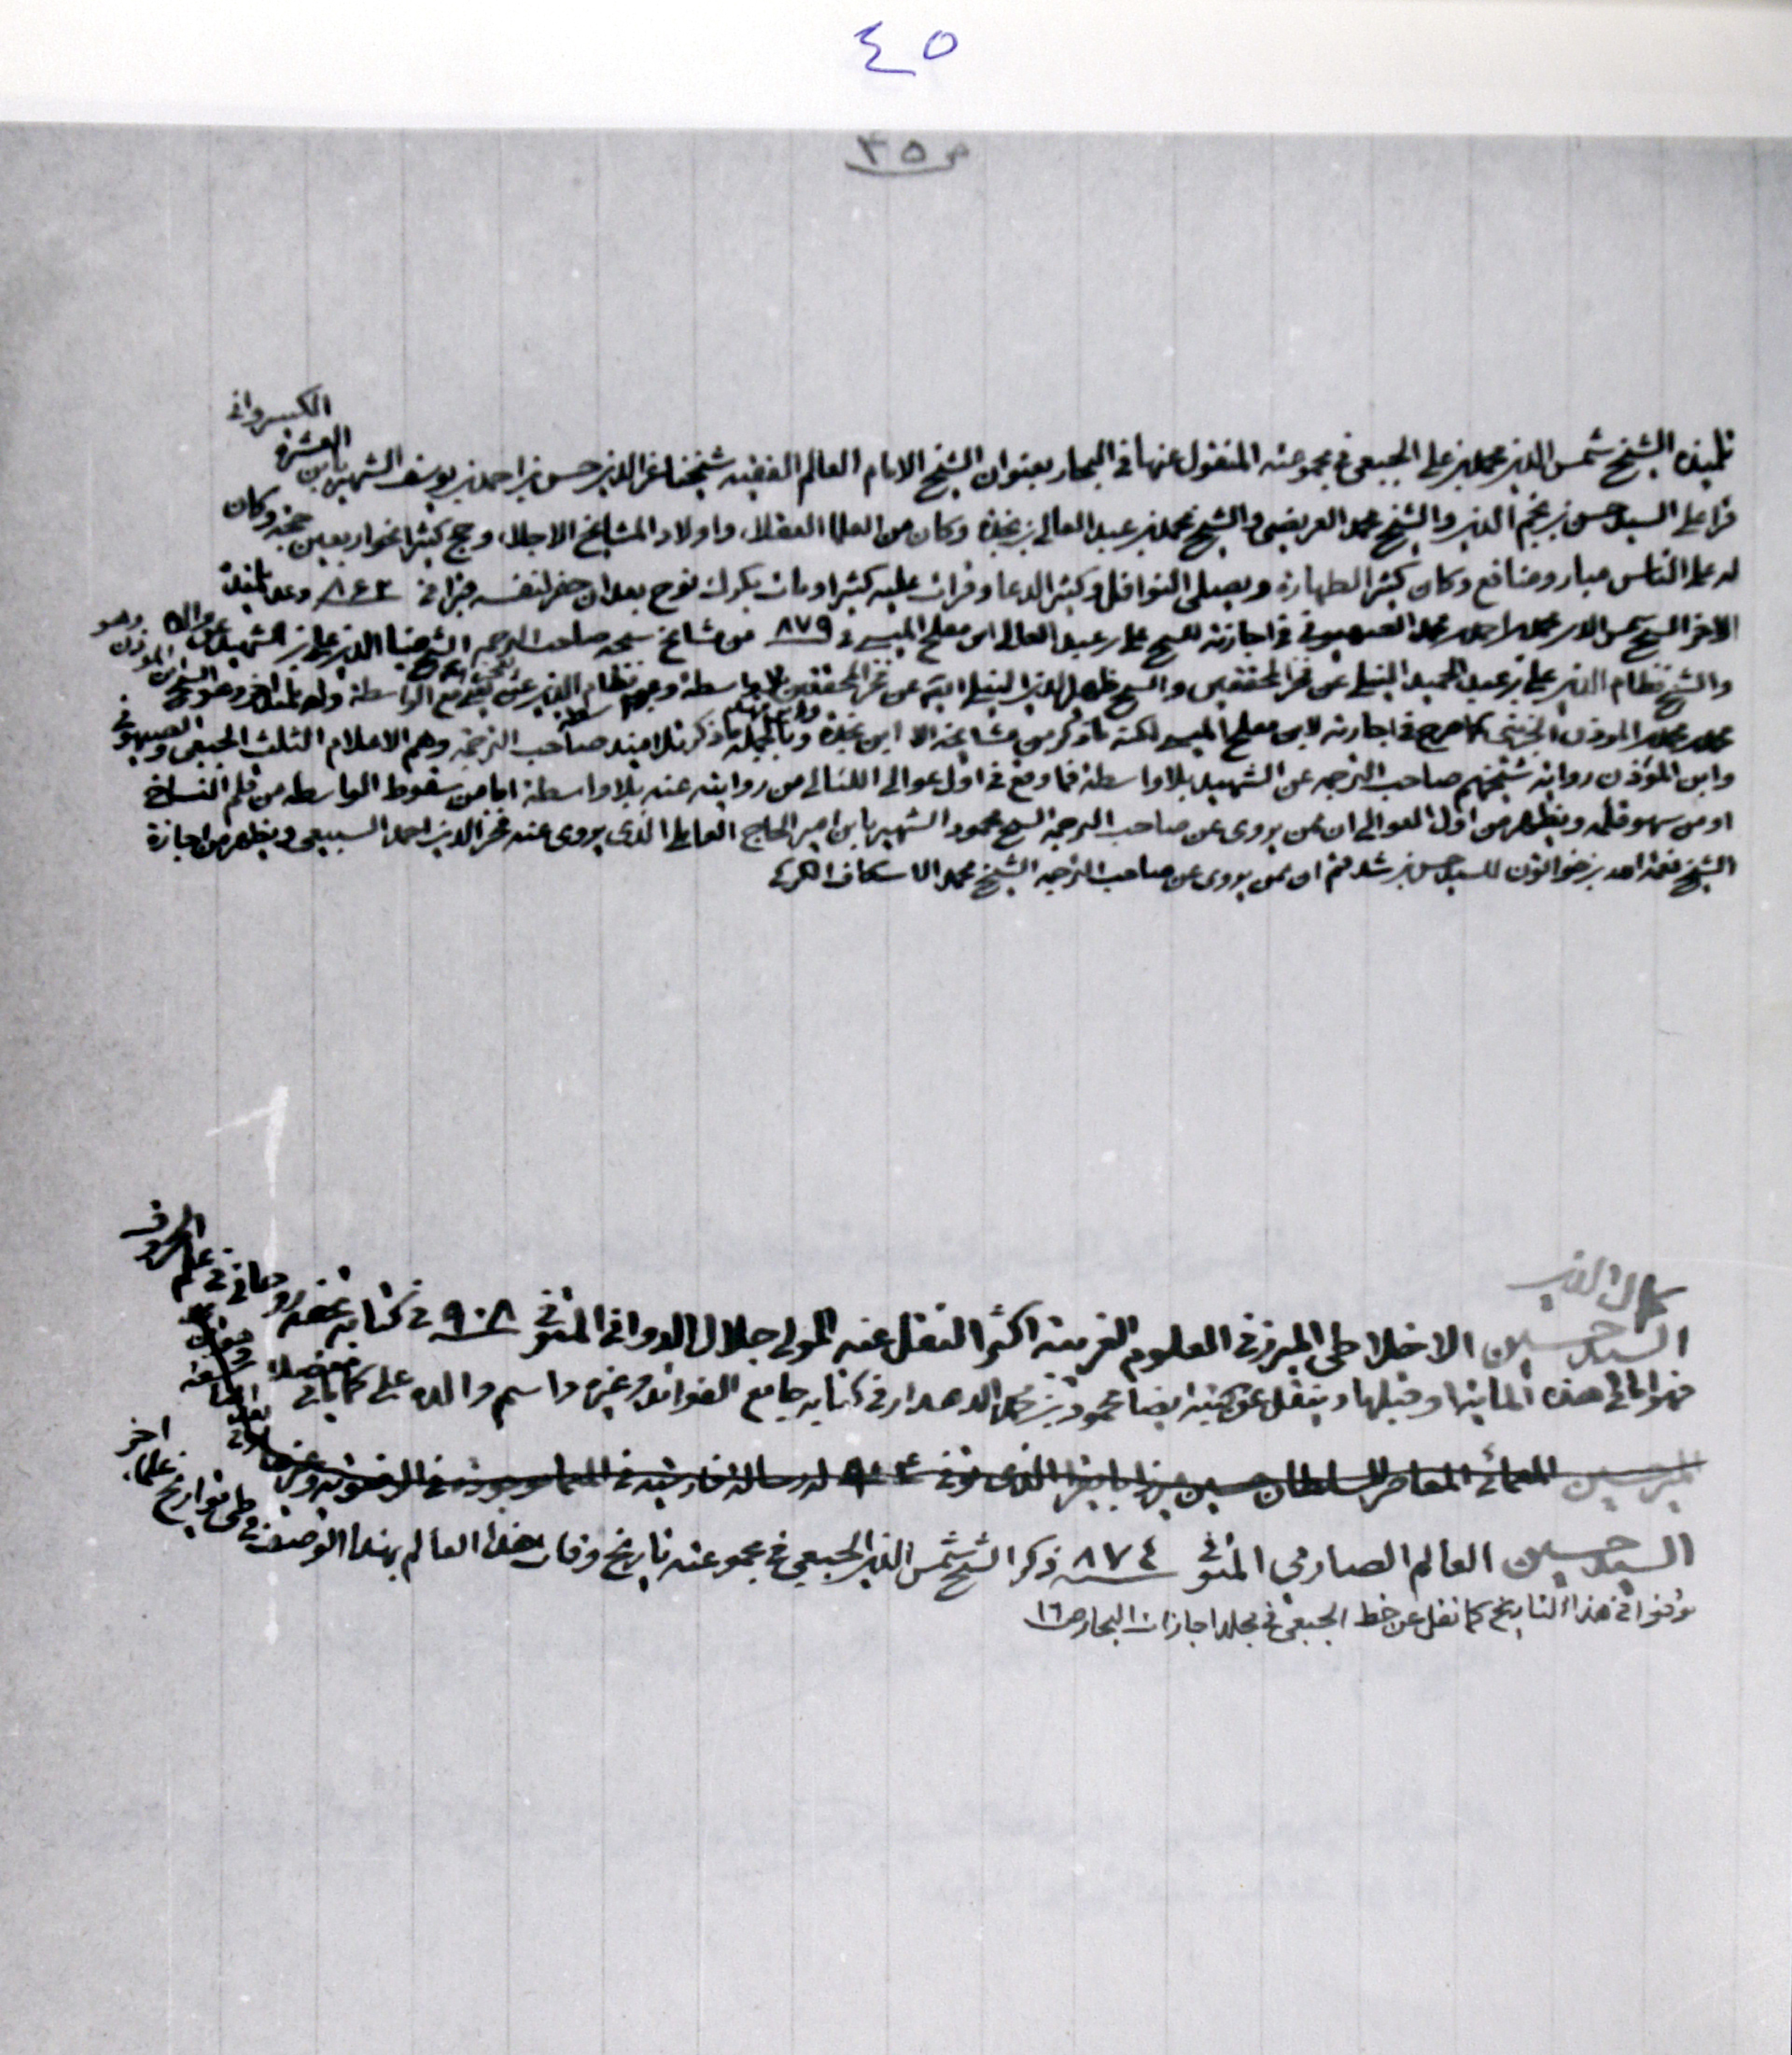 ٤٥
ص ٣٥
تلميذه الشيخ شمس الدين محمد بن علي الجبعي في مجموعته المنقول عنها في البحار بعنوان الشيخ الامام العالم الفقيه شيخنا عز الدين حسن بن احمد بن يوسف الشهير بابن العشرة الكسرواني
قرا على السيد حسن بن نجم الدين والشيخ محمد العريضي والشيخ محمد بن عبد العالي بن نجدة وكان من العلما العقلا، واولاد المشايخ الاجلا، وحج كثيرا نحوا ربعين حجة وكان
له على الناس مبار ومنافع وكان كثير الطهارة ويصلي النوافل وكثير الدعا وقرات عليه كثيرا ومات بكرك نوح بعد ان حفر لنفسه قبرا في ٨٦٢ وعد تلميذه
الاخر الشيخ شمس الدين محمد بن احمد بن محمد الصهيوني في اجازته للشيخ علي بن عبد العالي ابن مفلح الميسي في ٨٧٩ من مشايخ شيخه صاحب الترجمه الشيخ ضيا الدين علي بن الشهيد عن والده
والشيخ نظام الدين علي بن عبد الحميد النيلي عن فخر المحققين والشيخ ظهير الدين النيلي ايضا عن فخر المحققين بلا واسطة
محمد بن محمد بن المؤذن الجزيني كما صرح في اجازته لابن مفلح الميسي لكنه ما ذكر من مشايخه الا ابن نجدة وبالجملة ما ذكر تلاميذ صاحب الترجمة وهم الاعلام الثلث الجبعي والصهيوني
وابن المؤذن رواية شيخهم صاحب الترجمه عن الشهيد بلا واسطة فما وقع في اول عوالي اللئالي من روايته عنه بلا واسطة اما من سقوط الواسطه من قلم النساخ
او من سهو قلمه ويظهر من اول العوالي ان ممن يروى عن صاحب الترجمه الشيخ محمود الشهير بابن امير الحاج العاملي الذى يروى عنه فخر الدين احمد السبيعي ويظهر من اجازة
الشيخ نعمة الله بن خواتون للسيد حسن بن شدقم ان ممن يروى عن صاحب الترجمه الشيخ محمد الاسكاف الكركي
كمال الدين
السيد حسين الاخلاطي المبرز في العلوم الغريبة اكثر النقل عنه المولى جلال الدواني المتوفى ٩٠٨ في كتابه تحفه روحاني في علم الحروف
فهو اما في هذه الماية او قبلها وينقل عن كتبه ايضا محمود بن محمد الدهدار في كتابه جامع الفوائد وغيره واسم والده علي كما ياتي مفصلا
مير حسين المعمائي المعاصر للسلطان حسين ميرزا بايقرا الذى توفى ٩١٢ له رسالة فارسية في المعما موجودة في الرضوية
السيد حسين العالم الصارمي المتوفى ٨٧٤ ذكر الشيخ شمس الدين الجبعي في مجموعته تاريخ وفات هذا العالم بهذا الوصف في طي تواريخ علماء اخر
توفوا في هذا التاريخ كما نقل عن خط الجبعي في مجلد اجازات البحار ص ١٦